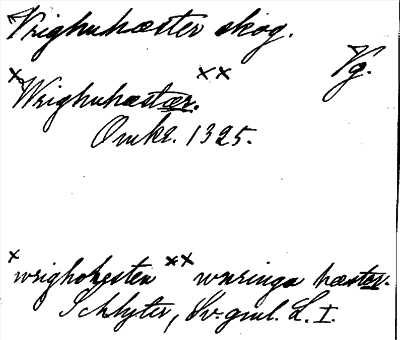 Vrighuhæster skog.
Vg.
×Wrighuhæstær. ××
Omkr. 1325.
× wrighohesten ×× wæringa hæstær.
Schlyter, Sv. gml. L. I.